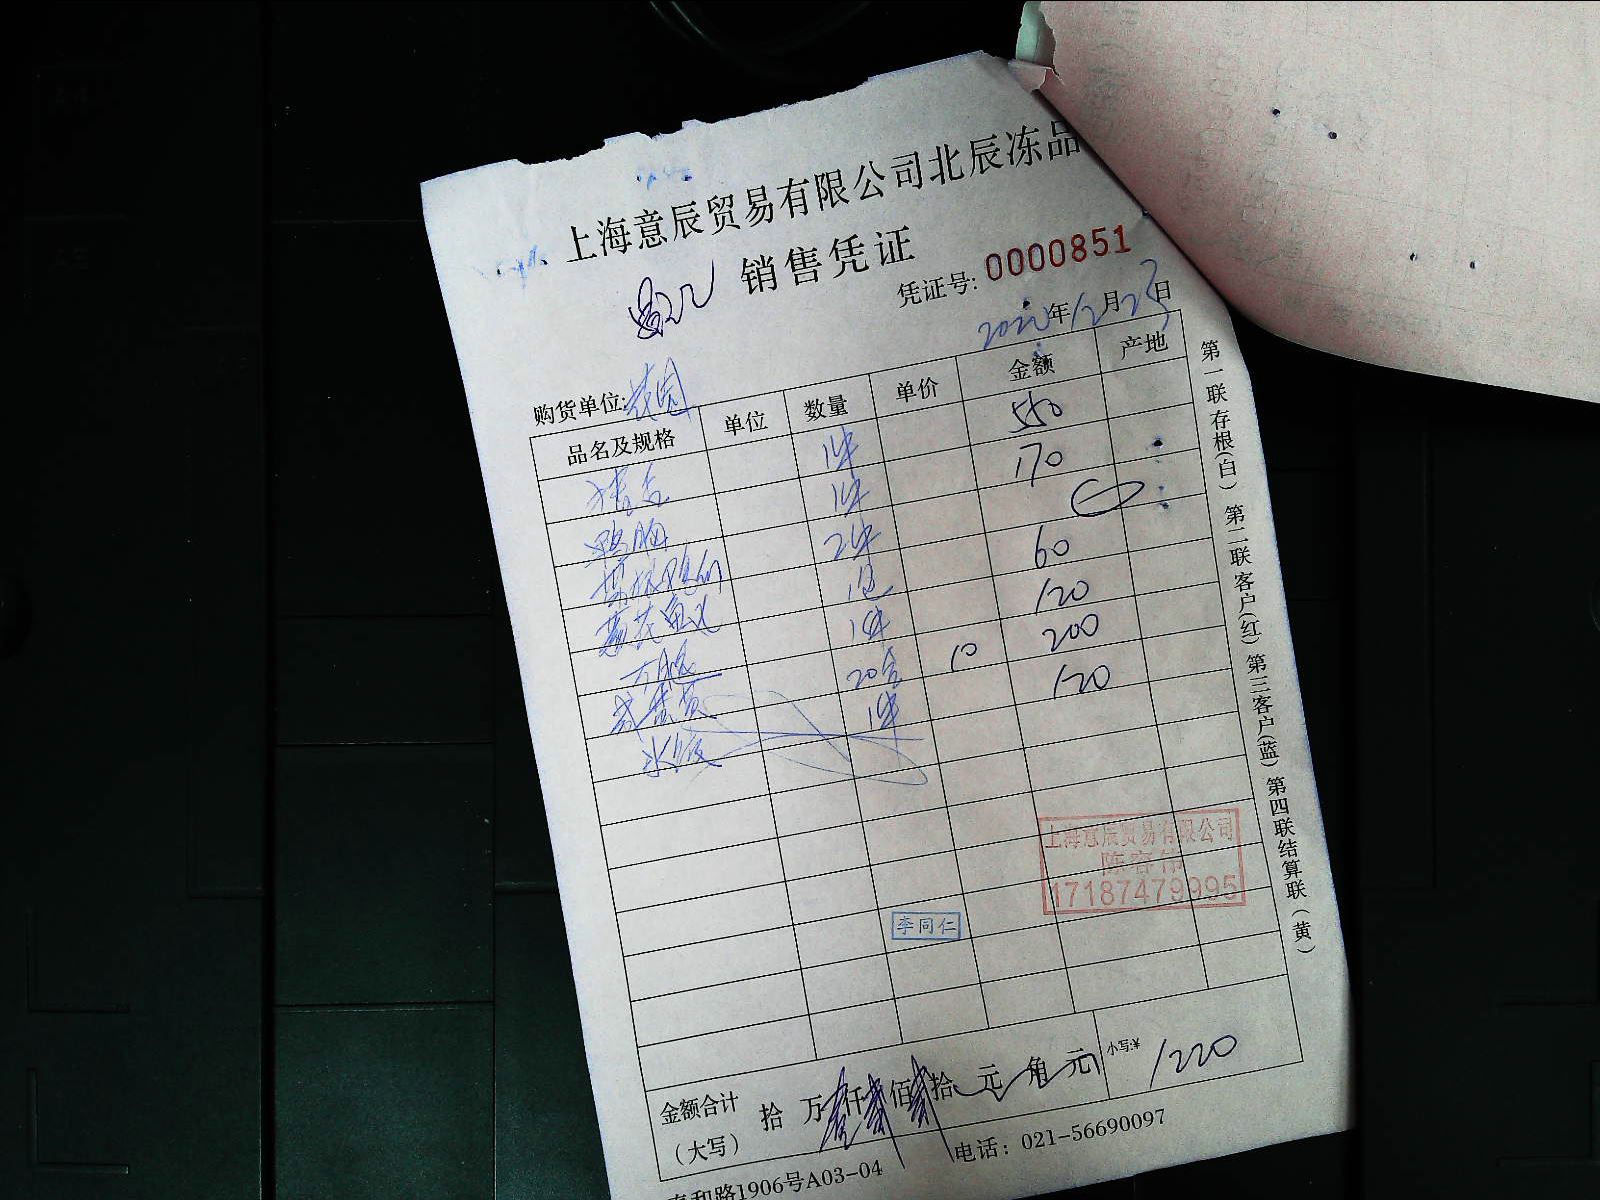 上海意辰贸易有限公司北辰冻品
销售凭证
凭证号: 0000851
2022年12月23日
购货单位:
品名及规格 单位 数量 单价 金额 产地
1件 550
鸭胸 1件 170
2件
1包 60
1件 120
20 10 200
1件 120
上海意辰贸易有限公司
陈容伟
17187479995
李同仁
金额合计(大写) 拾 万壹仟贰佰贰拾 元 角 元 小写:¥ 1220
1906号A03-04 电话: 021-56690097
第一联存根(白) 第二联客户(红) 第三客户(蓝) 第四联结算联(黄)